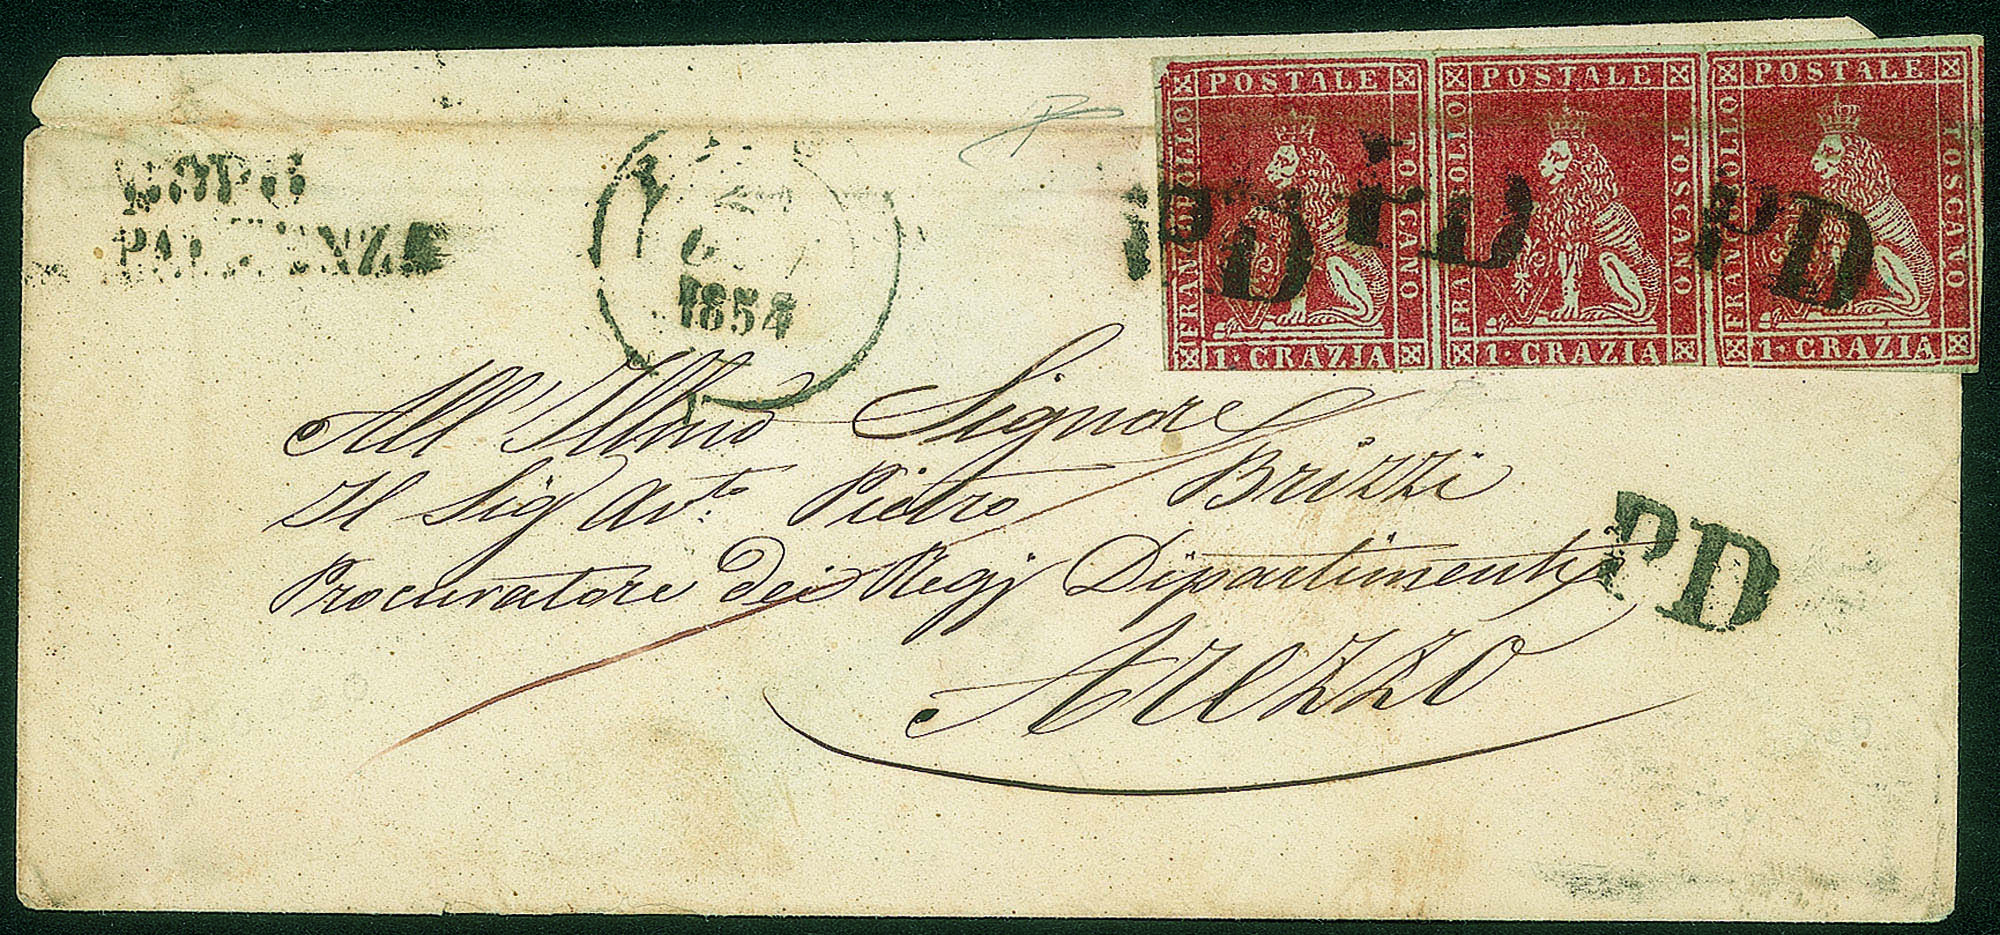 POSTALE
FRANCOBOLLO
TOSCANO
1. CRAZIA
POSTALE
FRANCOBOLLO
TOSCANO
1. CRAZIA
POSTALE
FRANCOBOLLO
TOSCANO
1. CRAZIA
PD
PD
PD
DOPO
PARTENZA
1854
All' Illmo Signore
Il Sig Avto. Pietro Brizzi
Procuratore dei Regj Dipartimenti
PD
Arezzo